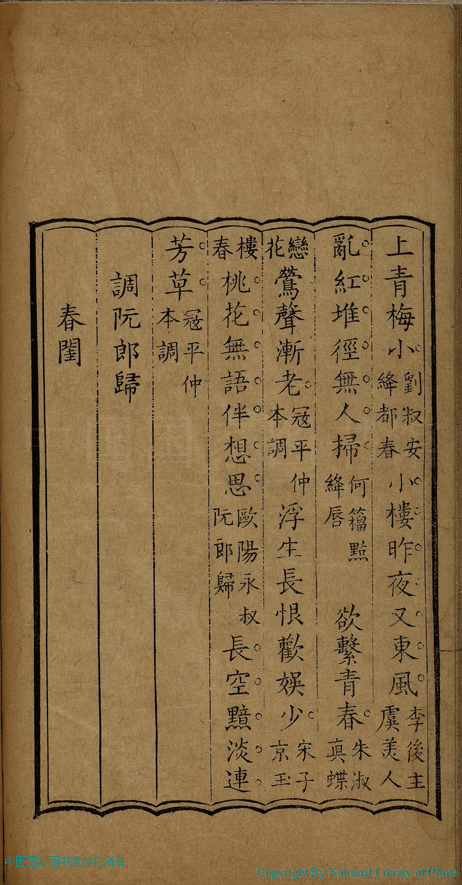 上青梅小劉叔安絳都春小樓昨夜又東風李後主虞美人
亂紅堆徑無人掃何籀點絳唇欲繫青春朱淑真蝶
戀花鶯聲漸老冠平仲本調浮生長恨歡娛少宋子京玉
樓春桃花無語伴想思歐陽永叔阮郎歸長空黯淡連
芳草冠平仲本調
調阮郎歸
春閨
Copyright By National Library of China